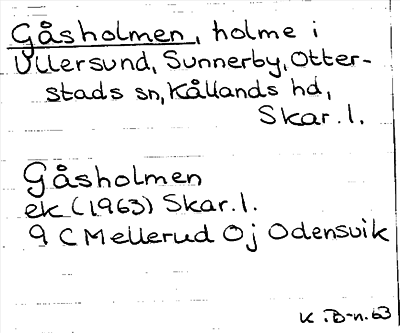 Gåsholmen, holme i
Ullersund, Sunnerby, Otter-
stads sn, Kållands hd,
Skar. l.
Gåsholmen
ek (1963) Skar. l.
9 C Mellerud Oj Odensvik
K. B-n. 63